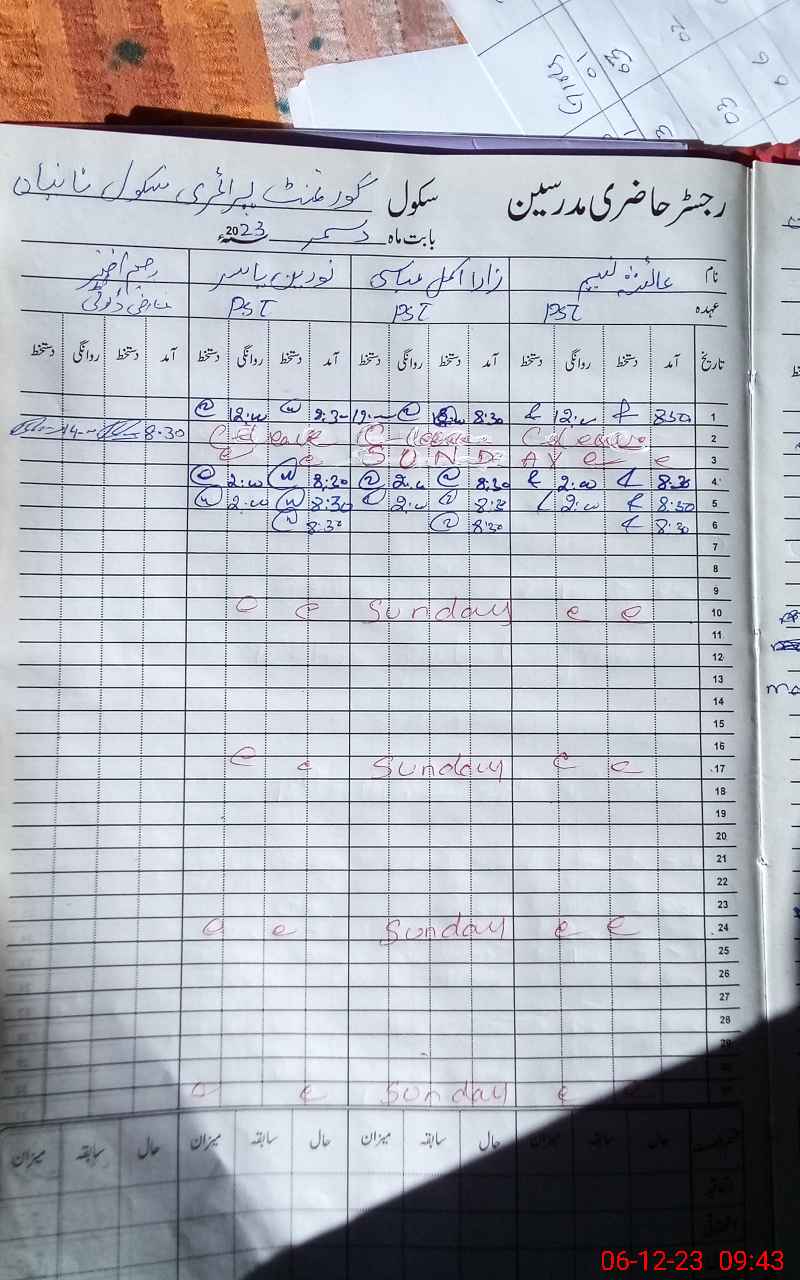 رجسٹر حاضری مدرسین سکول گورنمنٹ پرائمری سکول
بابت ماہ دسمبر 2023ء
نام عائشہ نسیم زارا اکمل عباسی نورین یاسر
عہدہ PST PST PST عارضی ڈیوٹی
تاریخ آمد دستخط روانگی دستخط آمد دستخط روانگی دستخط آمد دستخط روانگی دستخط آمد دستخط روانگی دستخط
1 8:30 12:00 8:30 12:00
2 C Leave C Leave C Leave 8:30
3 SUNDAY
4 8:30 2:00 8:30 2:00 8:30 2:00
5 8:30 2:00 8:30 2:00 8:30 2:00
6 8:30 8:30 8:30
7
8
9
10 Sunday
11
12
13
14
15
16
17 Sunday
18
19
20
21
22
23
24 Sunday
25
26
27
28
29
Sunday
حال سابقہ میزان حال سابقہ میزان حال سابقہ میزان حال سابقہ میزان
06-12-23 09:43